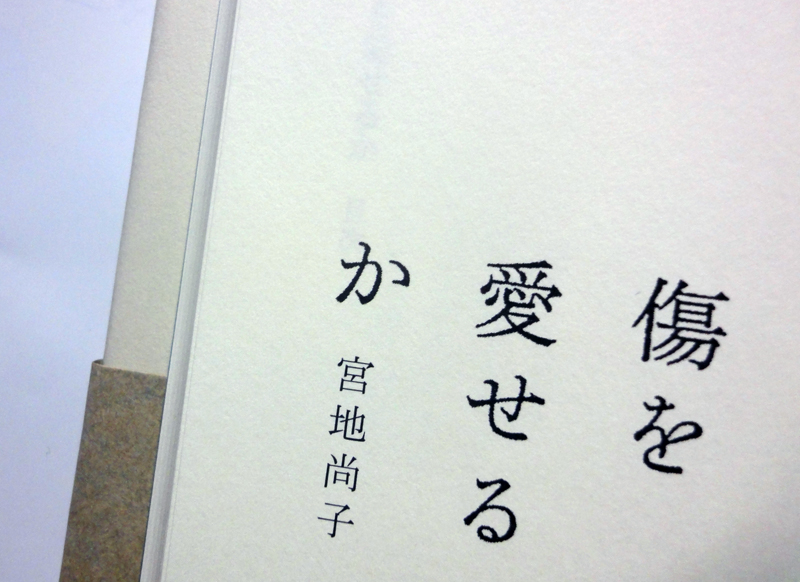 傷を
愛せる
か
宮地尚子